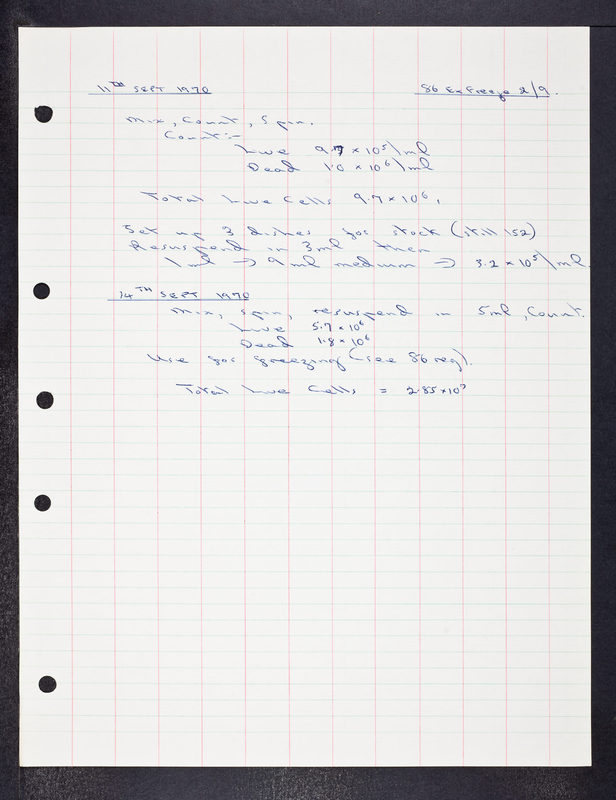 11TH SEPT 1970
86 Ex Freeze 2/9.
Mix, Count, Spin.
Count:-
Live 9.7 × 10⁵/ml
Dead 1.0 × 10⁶/ml
Total Live Cells 9.7 × 10⁶.
Set up 3 dishes for stock (still 152)
Resuspend in 3ml then
1ml → 9ml medium → 3.2 × 10⁵/ml.
14TH SEPT 1970
Mix, spin, resuspend in 5ml, Count.
Live 5.7 × 10⁶
Dead 1.8 × 10⁶
Use for freezing (see 86 reg).
Total Live Cells = 2.85 × 10⁷